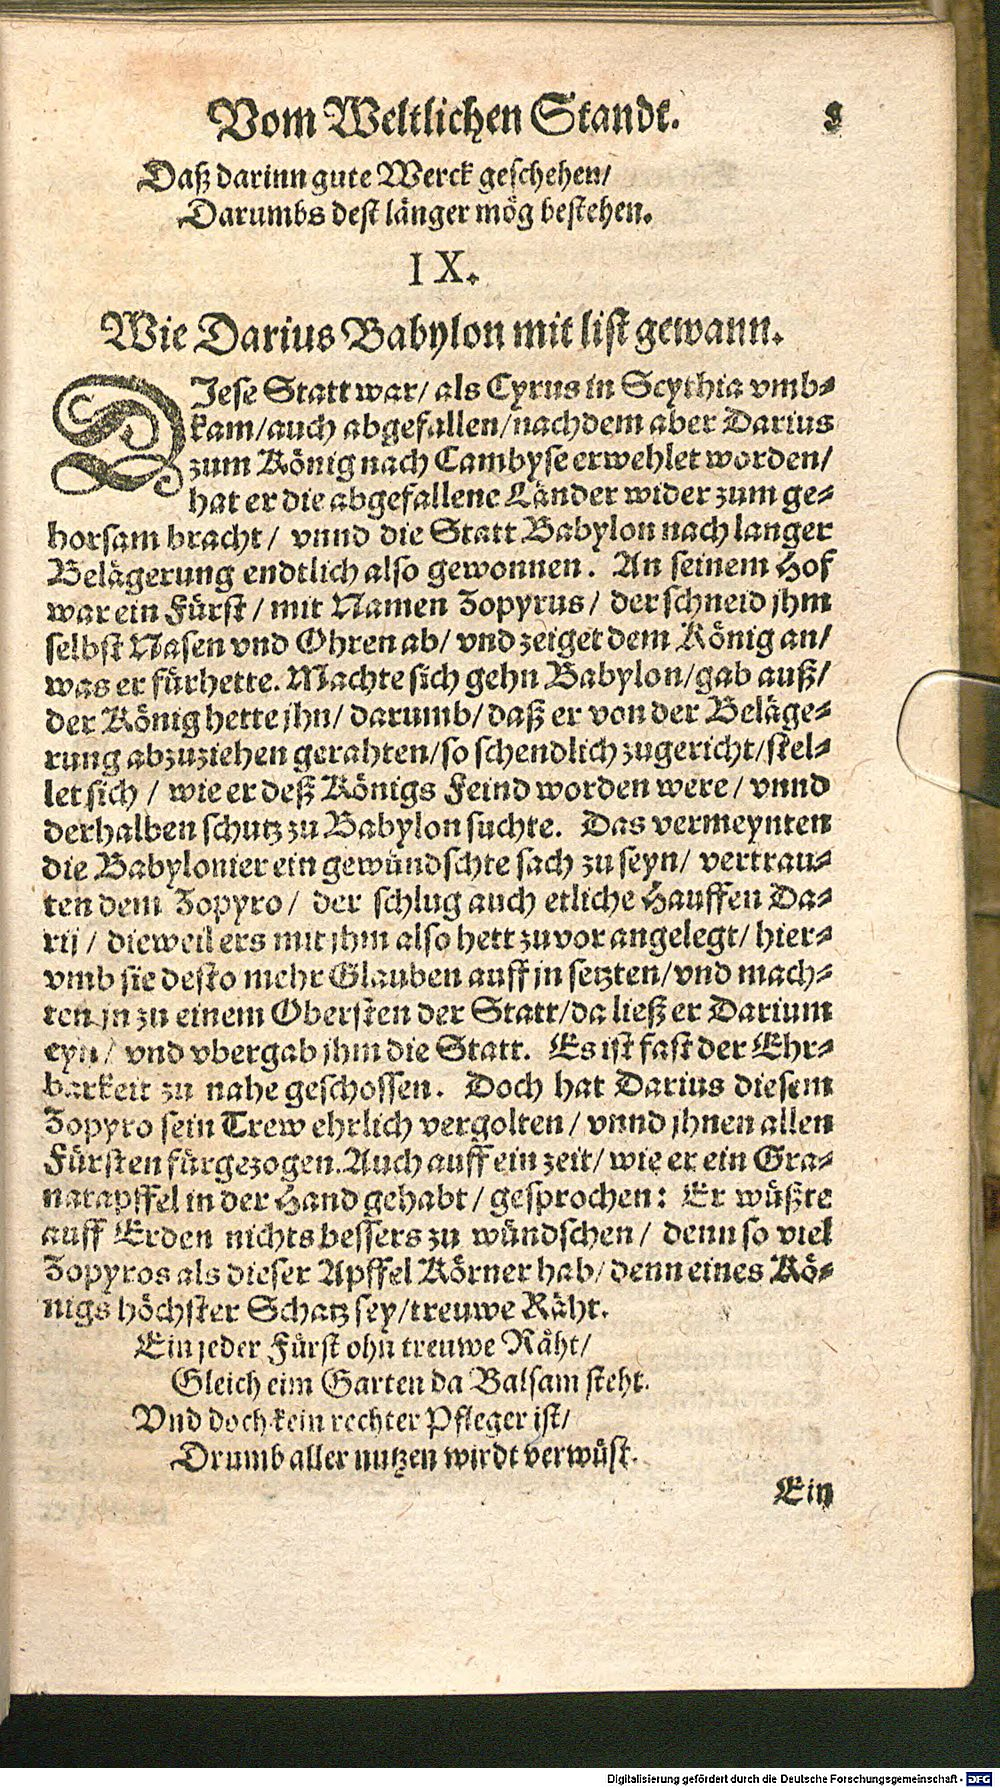 Vom Weltlichen Standt. 8
Daß darinn gute Werck geschehen/
Darumbs dest länger mög bestehen.
IX.
Wie Darius Babylon mit list gewann.
DJese Statt war/ als Cyrus in Scythia vmb-
kam/auch abgefallen/nachdem aber Darius
zum König nach Cambyse erwehlet worden/
hat er die abgefallene Länder wider zum ge-
horsam bracht/ vnnd die Statt Babylon nach langer
Belägerung endtlich also gewonnen. An seinem Hof
war ein Fürst/ mit Namen Zopyrus/ der schneid jhm
selbst Nasen vnd Ohren ab/ vnd zeiget dem König an/
was er fürhette. Machte sich gehn Babylon/gab auß/
der König hette jhn/ darumb/ daß er von der Beläge-
rung abzuziehen gerahten/so schendlich zugericht/stel-
let sich/ wie er deß Königs Feind worden were/ vnnd
derhalben schutz zu Babylon suchte. Das vermeynten
die Babylonier ein gewündschte sach zu seyn/ vertrau-
ten dem Zopyro/ der schlug auch etliche Hauffen Da-
rij/ dieweil ers mit jhm also hett zuvor angelegt/ hier-
vmb sie desto mehr Glauben auff jn setzten/vnd mach-
ten jn zu einem Obersten der Statt/da ließ er Darium
eyn/ vnd vbergab jhm die Statt. Es ist fast der Ehr-
barkeit zu nahe geschossen. Doch hat Darius diesem
Zopyro sein Trew ehrlich vergolten/ vnnd jhnen allen
Fürsten fürgezogen. Auch auff ein zeit/ wie er ein Gra-
natapffel in der Hand gehabt/ gesprochen: Er wüßte
auff Erden nichts bessers zu wündschen/ denn so viel
Zopyros als dieser Apffel Körner hab/ denn eines Kö-
nigs höchster Schatz sey/treuwe Räht.
Ein jeder Fürst ohn treuwe Räht/
Gleich eim Garten da Balsam steht.
Vnd doch kein rechter Pfleger ist/
Drumb aller nutzen wirdt verwüst.
Ein
Digitalisierung gefördert durch die Deutsche Forschungsgemeinschaft - DFG